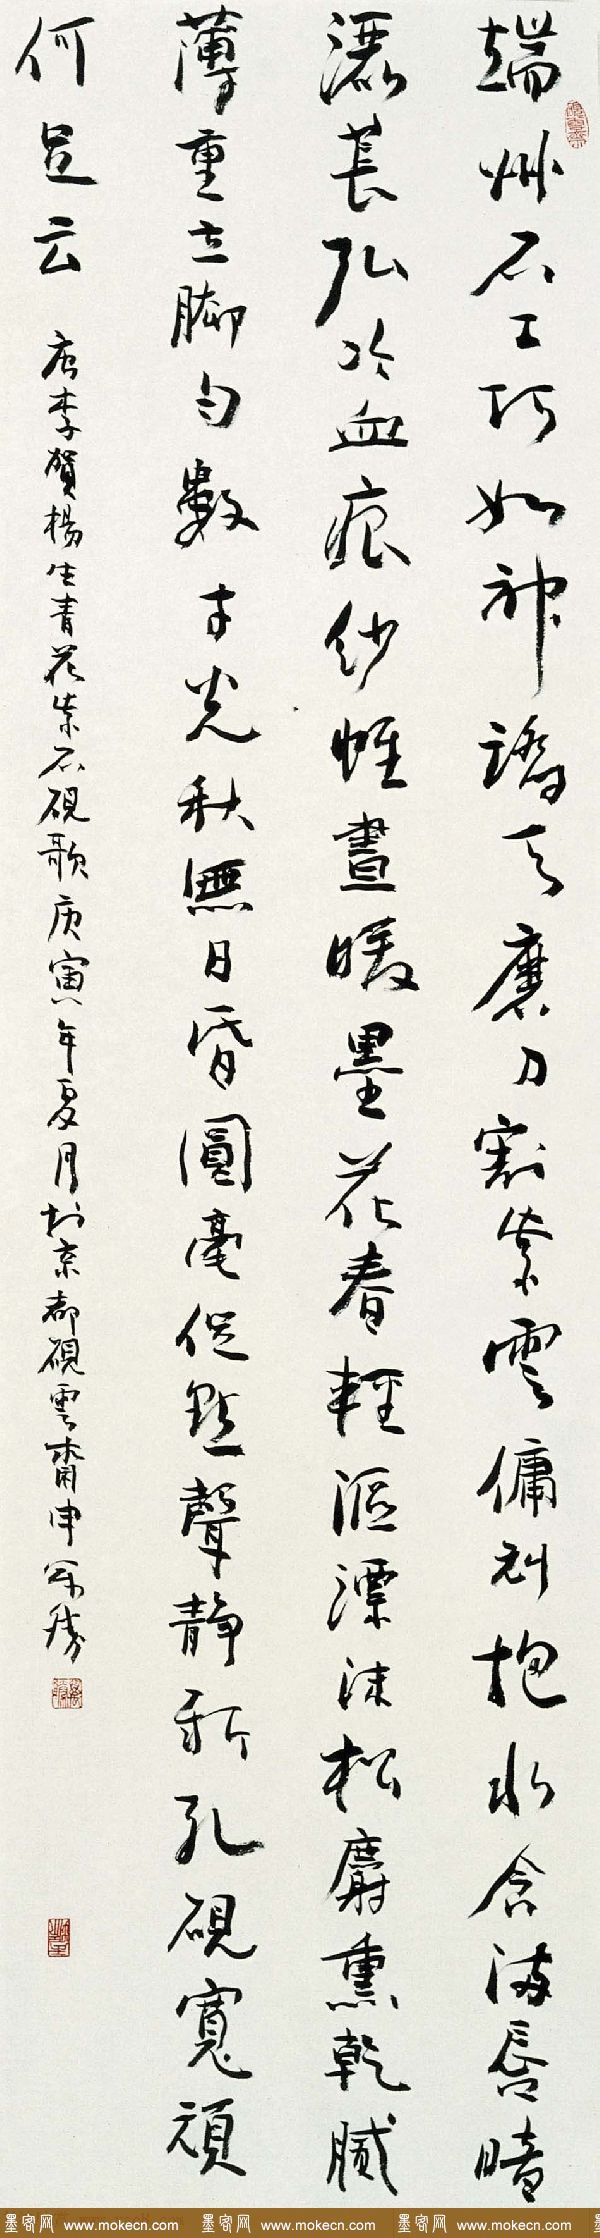 端州石工巧如神踏天磨刀割紫雲傭刓抱水含滿唇暗
灑萇弘冷血痕紗帷晝暖墨花春輕漚漂沫松麝熏乾膩
薄重立腳勻數寸光秋無日昏圓毫促點聲靜新孔硯寬頑
何足云
唐李賀楊生青花紫石硯歌庚寅年夏月於京都硯雲齋申萬勝
墨客网 www.mokecn.com 墨客网 www.mokecn.com 墨客网 www.mokecn.com